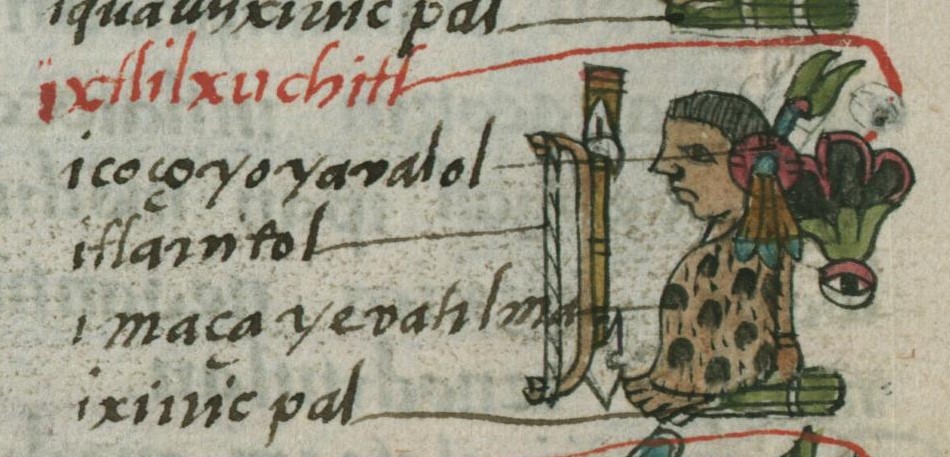 iquauhxiuic pal
ixtlilxuchitl
icoçoyoyavalol
itlauitol
imaça yevatilma
ixiuic pal